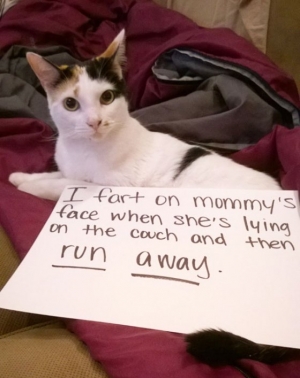 I fart on mommy's
face when she's lying
on the couch and then
run away.